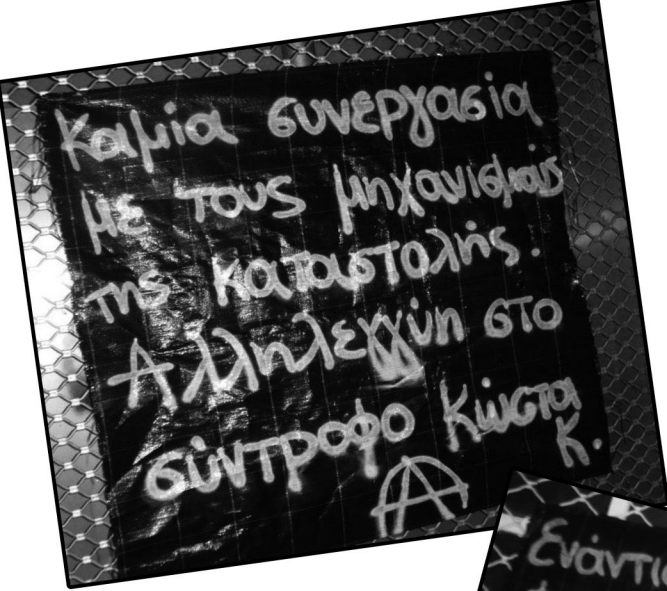 Καμία συνεργασία
με τους μηχανισμούς
της καταστολής.
Αλληλεγγύη στο
σύντροφο Κώστα
Κ.
Ⓐ